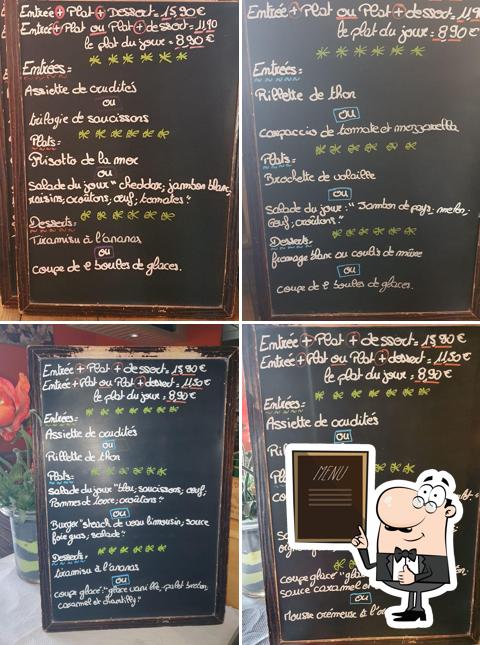 Entrée + Plat + Dessert = 15,90€
Entrée + Plat ou Plat + dessert = 11,90
le plat du jour = 8,90€
Entrées =
Assiette de crudités
ou
trilogie de saucissons
Plats =
Risotto de la mer
ou
Salade du jour " cheddar, jambon blanc,
raisins, croûtons, œuf, tomates "
Desserts =
Tiramisu à l'ananas
ou
coupe de 2 boules de glaces.
Entrée + Plat ou Plat + dessert = 11,9
le plat du jour = 8,90€
Entrées =
Rillette de thon
ou
Carpaccio de tomate et mozzarella
Plats =
Brochette de volaille
ou
Salade du jour : " Jambon de pays, melon,
œuf, croûtons. "
Desserts
fromage blanc au coulis de mûre
ou
coupe de 2 boules de glaces.
Entrée + Plat + dessert = 15,90€
Entrée + Plat ou Plat + dessert = 11,50€
le plat du jour = 8,90€
Entrées =
Assiette de crudités
ou
Rillette de thon
Plats =
salade du jour "bleu, saucissons, œuf,
Pommes de terre, croûtons "
ou
Burger "steack de veau limousin, sauce
foie gras, salade "
Desserts =
tiramisu à l'ananas
ou
coupe glacé : "glace vanille, palet breton,
caramel et chantilly "
Entrée + Plat + dessert = 15,90€
Entrée + Plat ou Plat + dessert = 11,50€
le plat du jour = 8,90€
Entrées =
Assiette de crudités
ou
MENU
coupe glacé
sauce caramel
ou
Mousse crémeuse